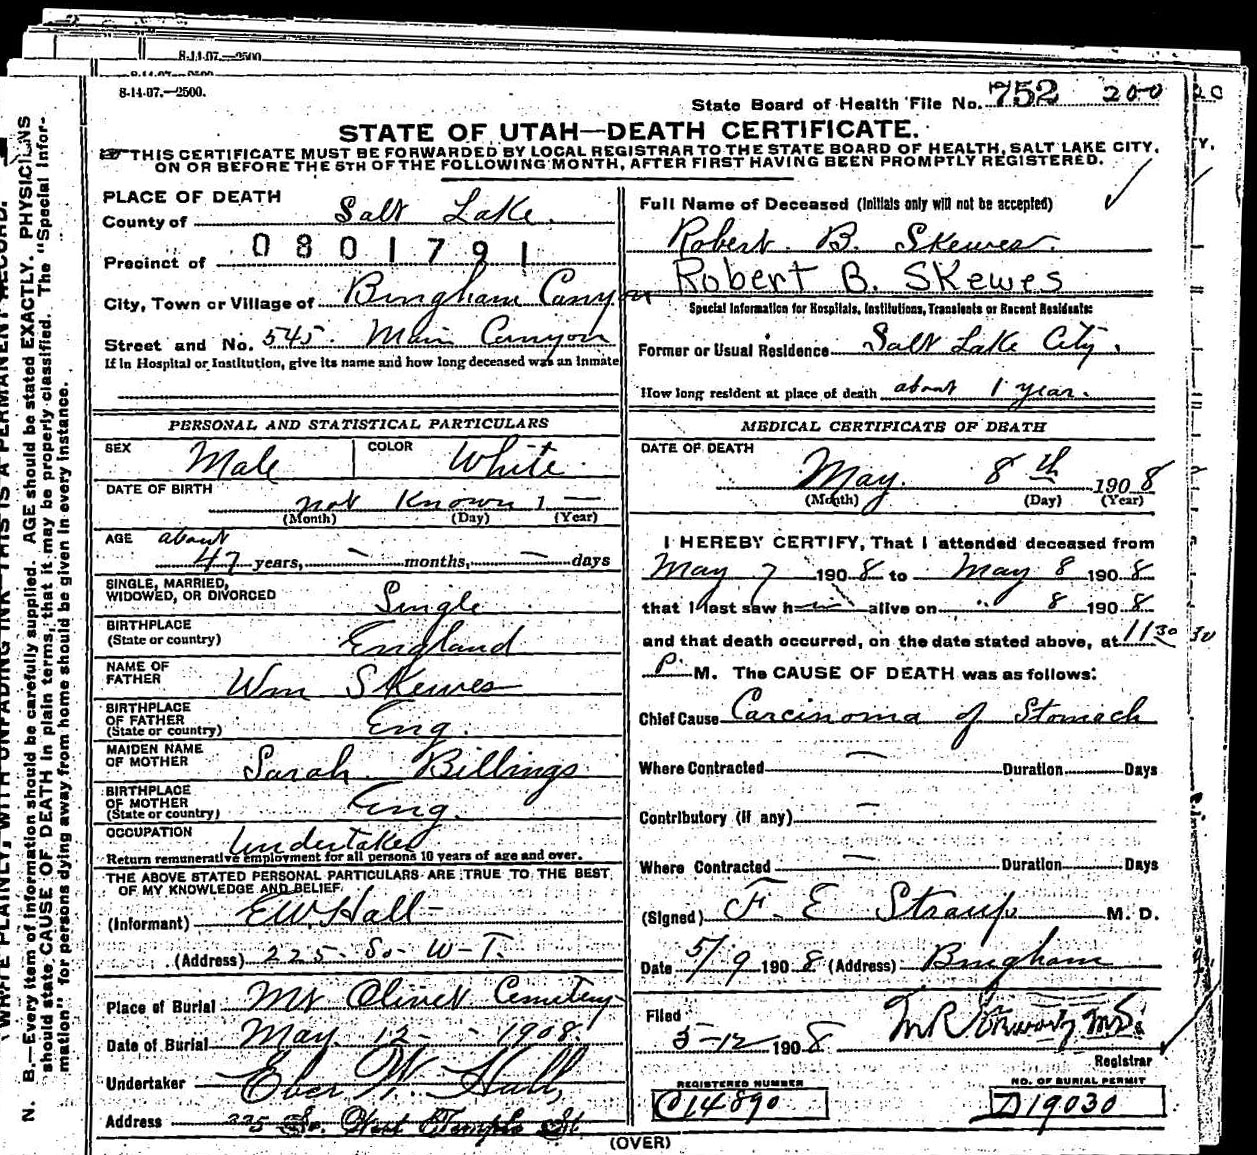 8-14-07.—2500
8-14-07.—2500.
State Board of Health File No. 752 200
STATE OF UTAH—DEATH CERTIFICATE.
THIS CERTIFICATE MUST BE FORWARDED BY LOCAL REGISTRAR TO THE STATE BOARD OF HEALTH, SALT LAKE CITY,
ON OR BEFORE THE 5TH OF THE FOLLOWING MONTH, AFTER FIRST HAVING BEEN PROMPTLY REGISTERED.
PLACE OF DEATH
County of Salt Lake.
0801791
Precinct of
City, Town or Village of Bingham Canyon
Street and No. 545. Main Canyon
If in Hospital or Institution, give its name and how long deceased was an inmate
PERSONAL AND STATISTICAL PARTICULARS
SEX Male COLOR White
DATE OF BIRTH not Known 1 —
(Month) (Day) (Year)
AGE about
47 years, — months, — days
SINGLE, MARRIED,
WIDOWED, OR DIVORCED Single
BIRTHPLACE
(State or country) England
NAME OF
FATHER Wm Skewes
BIRTHPLACE
OF FATHER
(State or country) Eng.
MAIDEN NAME
OF MOTHER Sarah Billings
BIRTHPLACE
OF MOTHER
(State or country) Eng.
OCCUPATION Undertaker
Return remunerative employment for all persons 10 years of age and over.
THE ABOVE STATED PERSONAL PARTICULARS ARE TRUE TO THE BEST
OF MY KNOWLEDGE AND BELIEF
(Informant) E W Hall
(Address) 225- So- W-T.
Place of Burial Mt Olivet Cemetery
Date of Burial May 12 - 1908.
Undertaker Eber W. Hall,
Address 225 So. West Temple St.
Full Name of Deceased (Initials only will not be accepted)
Robert B. Skewes.
Robert B. Skewes
Special Information for Hospitals, Institutions, Transients or Recent Residents:
Former or Usual Residence Salt Lake City.
How long resident at place of death about 1 year.
MEDICAL CERTIFICATE OF DEATH
DATE OF DEATH
May. 8 th 1908
(Month) (Day) (Year)
I HEREBY CERTIFY, That I attended deceased from
May 7 1908 to May 8 1908
that I last saw him alive on " 8 1908
and that death occurred, on the date stated above, at 11 30
P. M. The CAUSE OF DEATH was as follows:
Chief Cause Carcinoma of Stomach
Where Contracted — Duration Days
Contributory (if any) —
Where Contracted — Duration Days
(Signed) F. E Straup M. D.
Date 5/9 1908 (Address) Bingham
Filed
5-12 1908
Registrar
REGISTERED NUMBER
O14890
NO. OF BURIAL PERMIT
D19030
(OVER)
N. B.—Every item of information should be carefully supplied. AGE should be stated EXACTLY. PHYSICIANS
should state CAUSE OF DEATH in plain terms, that it may be properly classified. The "Special Infor-
mation" for persons dying away from home should be given in every instance.